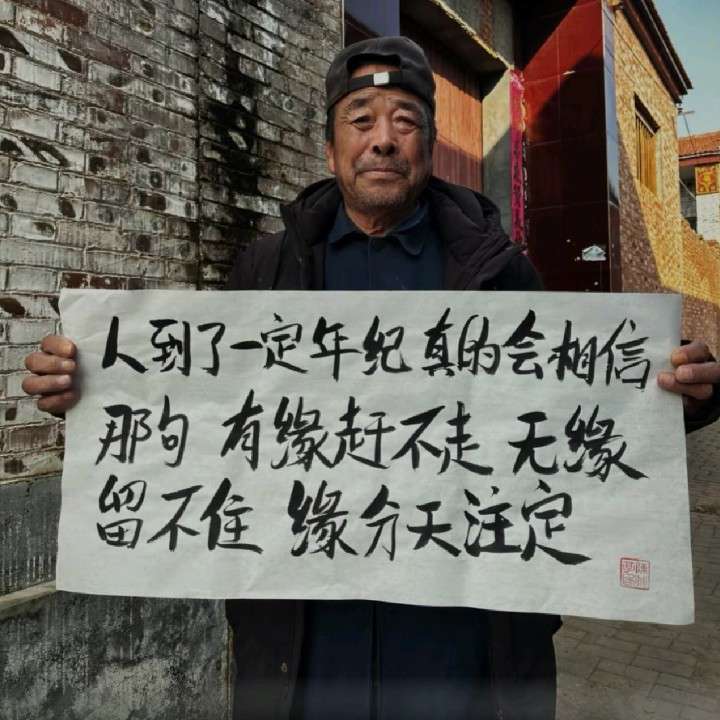 人到了一定年纪真的会相信
那句 有缘赶不走 无缘
留不住 缘分天注定